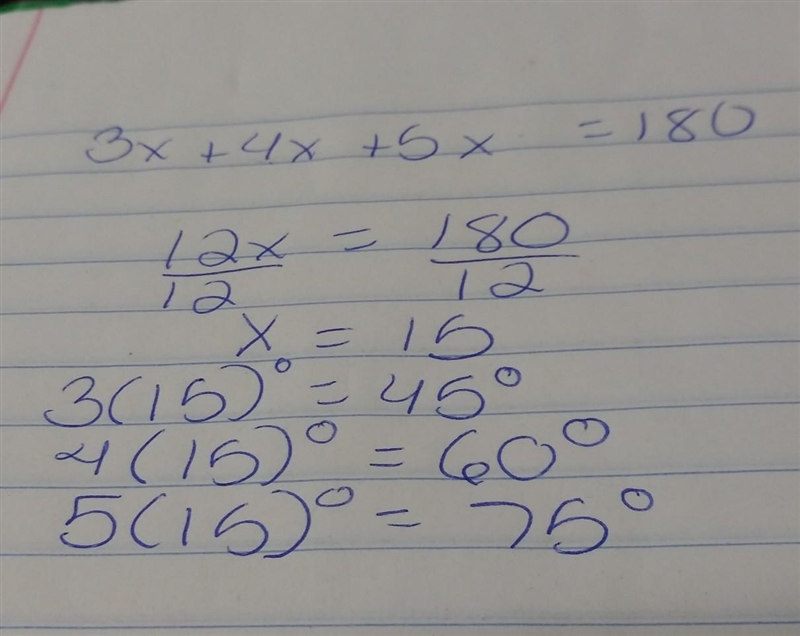 3x + 4x + 5x = 180
12x/12 = 180/12
x = 15
3(15)° = 45°
4(15)° = 60°
5(15)° = 75°